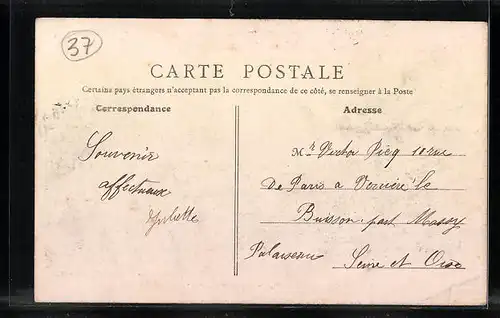 37
CARTE POSTALE
Certains pays étrangers n'acceptant pas la correspondance de ce côté, se renseigner à la Poste
Correspondance
Adresse
Souvenir
affectueux
Juliette
Mr Victor Picq 10 rue
De Paris a Verrière le
Buisson par Massy
Palaiseau Seine et Oise